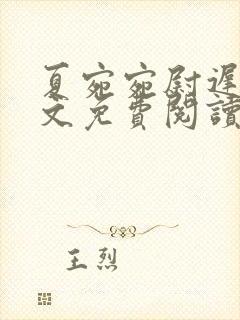 夏宛宛尉遲
文免費閱讀
王烈